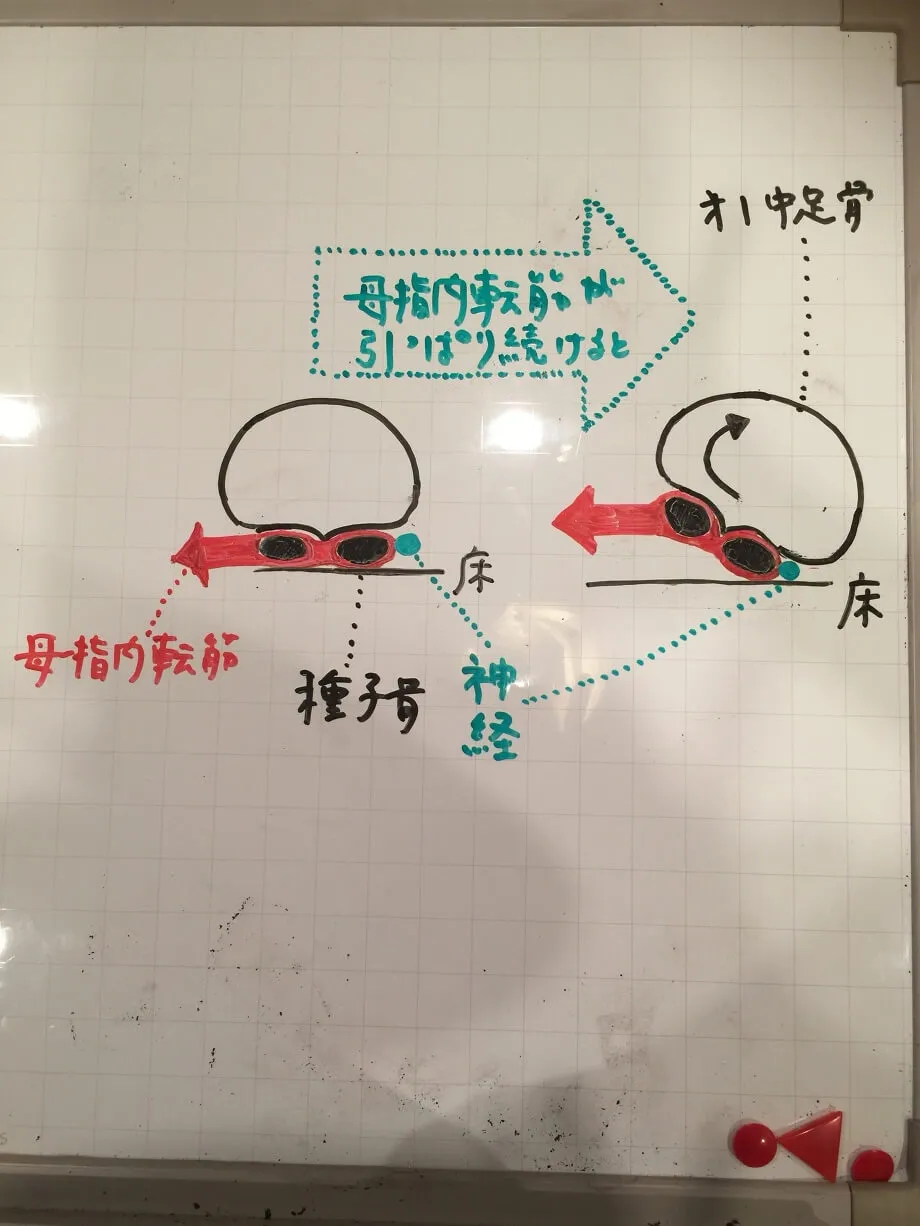 オ1中足骨
母指内転筋が
引っぱり続けると
床
床
母指内転筋
種子骨
神
経